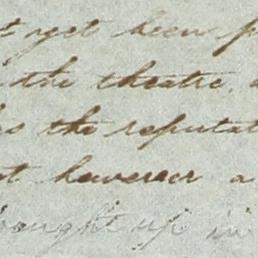 yet been
the theatre,
the reputat
however a
bought up in